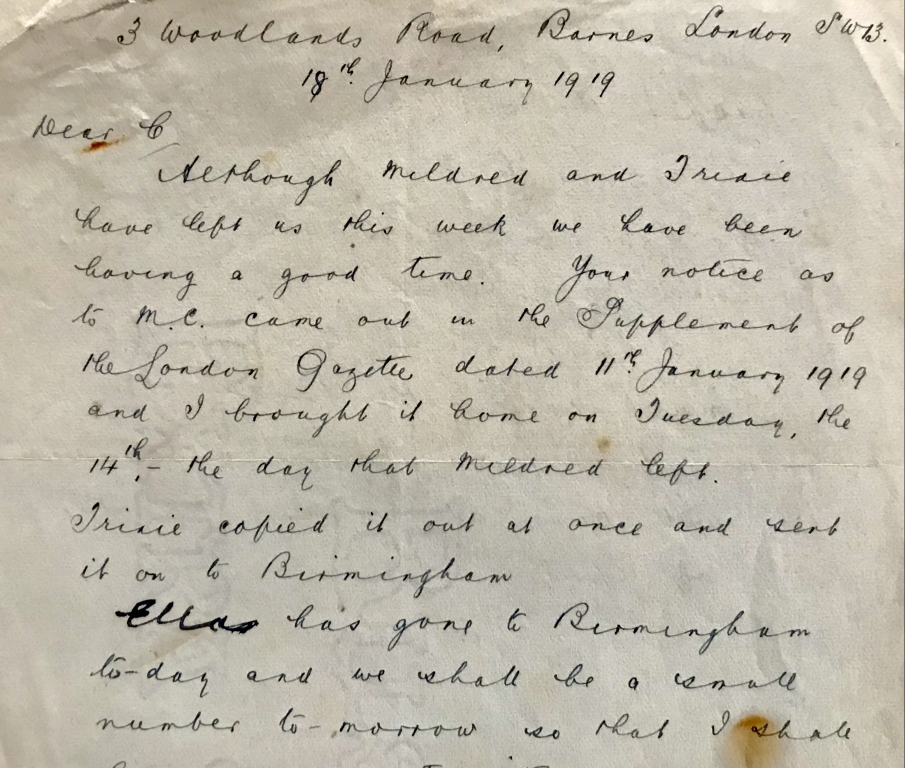 3 Woodlands Road, Barnes London SW13.
18th. January 1919
Dear C
Although Mildred and Trixie
have left us this week we have been
having a good time. Your notice as
to M.C. came out in the Supplement of
the London Gazette dated 11th January 1919
and I brought it home on Tuesday, the
14th,- the day that Mildred left.
Trixie copied it out at once and sent
it on to Birmingham
Ella has gone to Birmingham
to-day and we shall be a small
number to-morrow so that I shall